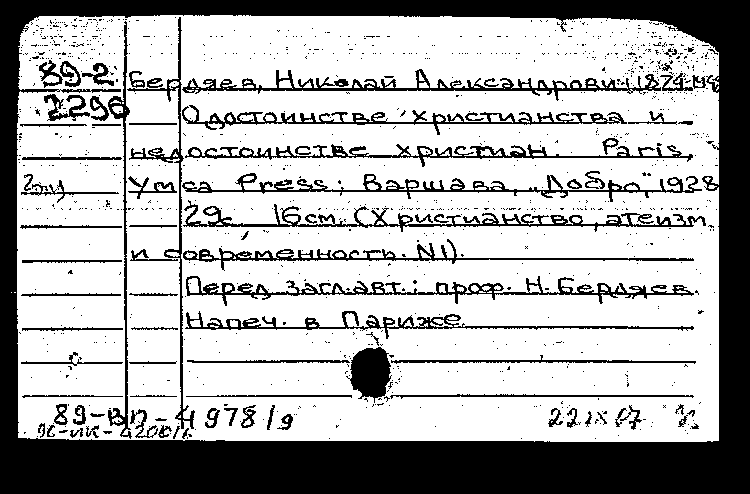 89-2 Бердяев, Николай Александрович (1874-1948
2296 О достоинстве христианства и
недостоинстве христиан. Paris,
Ymca Press; Варшава, „Добро", 1928
29с. 16см. (Христианство, атеизм
и современность. N1).
Перед загл. авт.: проф. Н. Бердяев.
Напеч. в Париже
89-ВП-4978/9